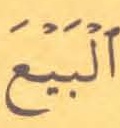 الْبَيْعَ